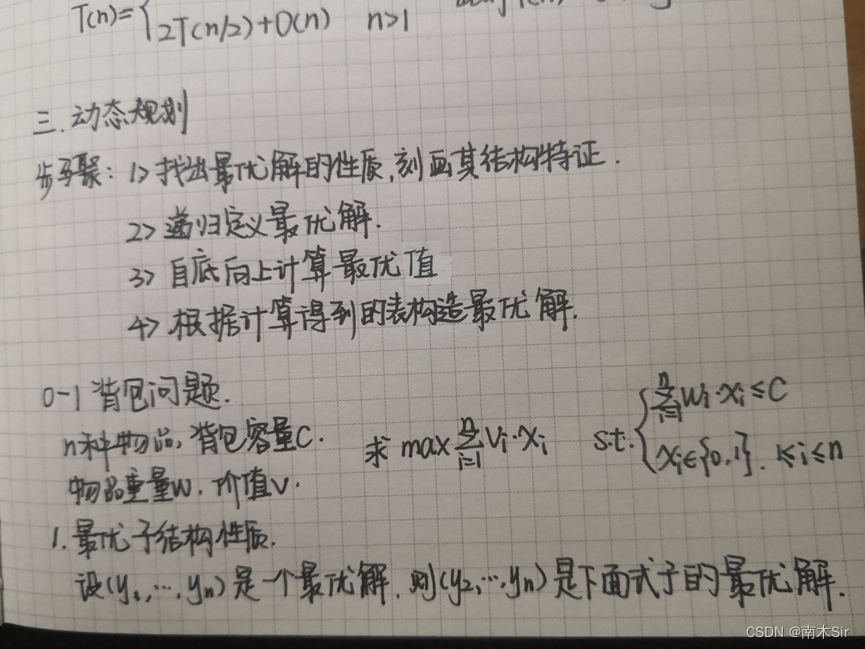 T(n)={2T(n/2)+O(n) n>1
三.动态规划
步骤: 1> 找出最优解的性质,刻画其结构特征.
2> 递归定义最优解.
3> 自底向上计算最优值
4> 根据计算得到的表构造最优解.
0-1 背包问题.
n种物品, 背包容量C. 求 max ∑_{i=1}^{n} Vi·xi s.t. { ∑_{i=1}^{n} Wi·xi ≤ C
xi∈{0,1}. 1≤i≤n
物品重量W. 价值V.
1. 最优子结构性质.
设(y1,…,yn)是一个最优解, 则(y2,…,yn)是下面式子的最优解.
CSDN @南木Sir